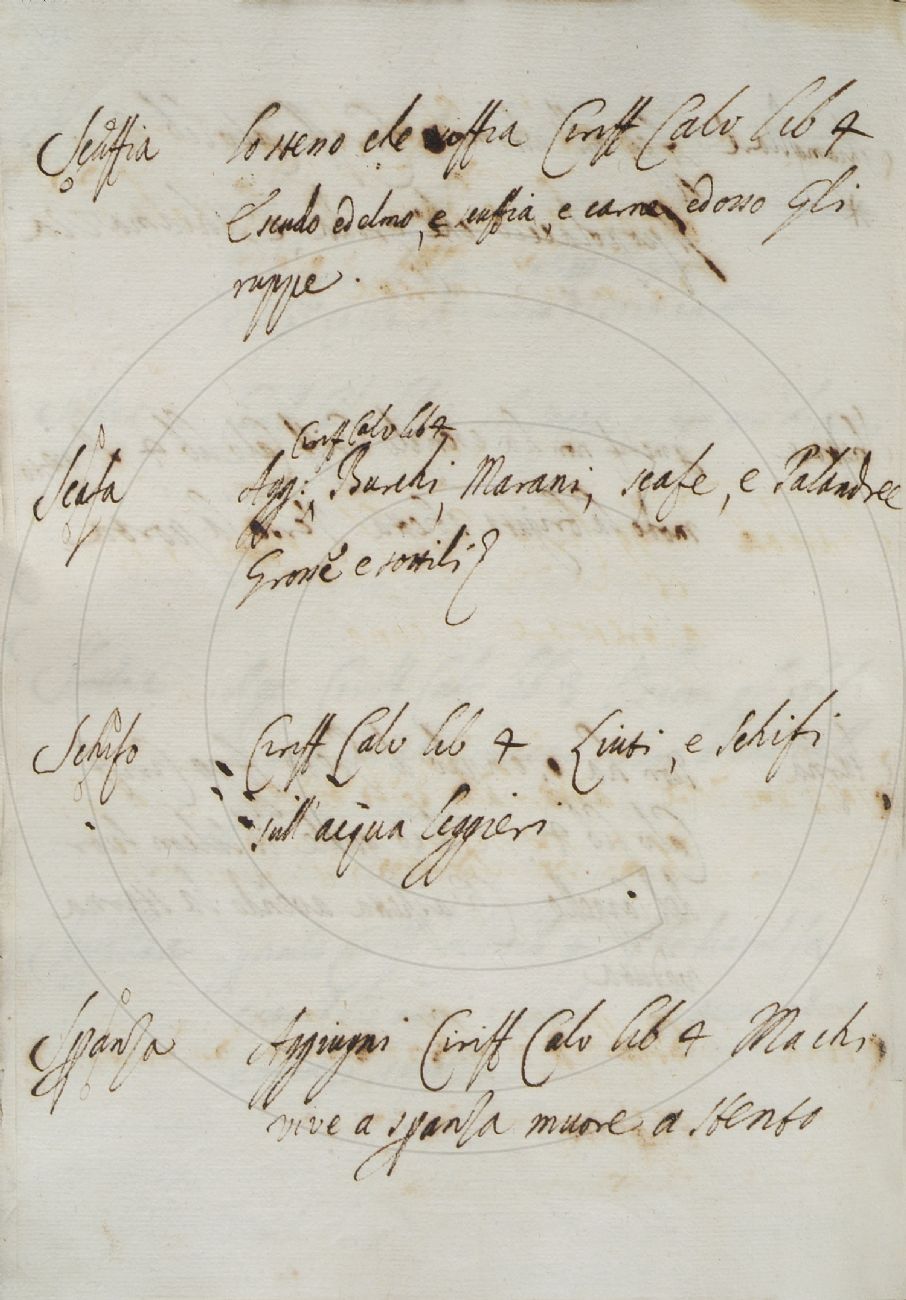 Scuffia lo stesso che cuffia Ciriff Calv lib 4
E scudo ed elmo, e scuffia, e carne ed osso Gli
ruppe.
Ciriff Calv lib 4
Scafa Agg. Burchi, Marani, scafe, e Palandree
Grosse e sottili
Schifo Ciriff Calv lib 4 Liuti, e Schifi
sull'acqua leggieri
Spanza Aggiugni Ciriff Calv lib 4 Ma chi
vive a spanza muore a stento